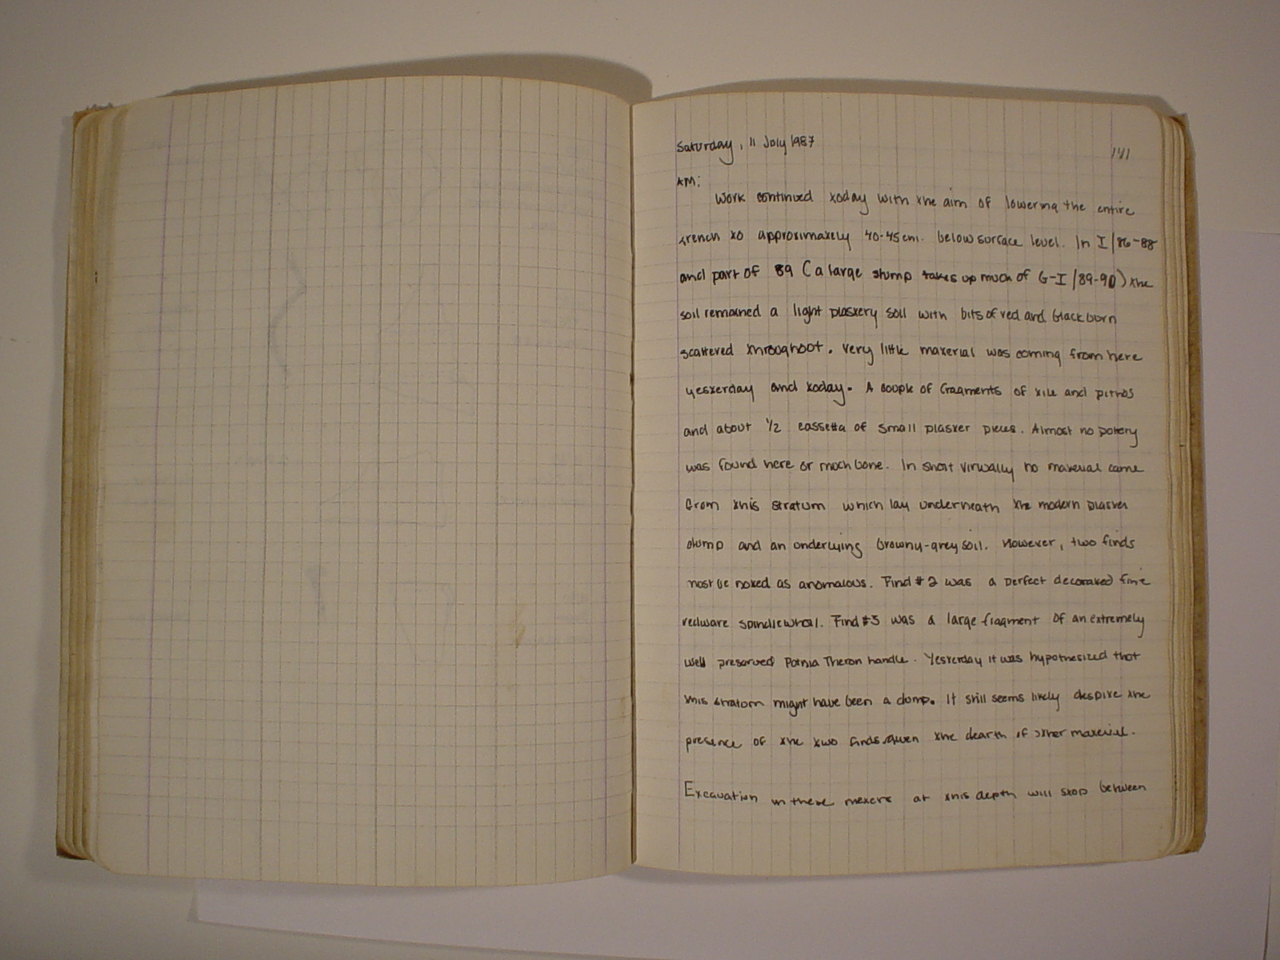 Saturday, 11 July 1987
141
AM:
Work continued today with the aim of lowering the entire
trench to approximately 40-45cm. below surface level. In I/86-88
and part of 89 (a large stump takes up much of G-I/89-90) the
soil remained a light plastery soil with bits of red and black burn
scattered throughout. Very little material was coming from here
yesterday and today. A couple of fragments of tile and pithos
and about 1/2 cassetta of small plaster pieces. Almost no pottery
was found here or much bone. In short virtually no material came
from this stratum which lay underneath the modern plaster
dump and an underlying browny-grey soil. However, two finds
must be noted as anomalous. Find #2 was a perfect decorated fine
redware spindlewhorl. Find #3 was a large fragment of an extremely
well preserved Potnia Theron handle. Yesterday it was hypothesized that
this stratum might have been a dump. It still seems likely despite the
presence of the two finds, given the dearth of other material.
Excavation in these meters at this depth will stop between